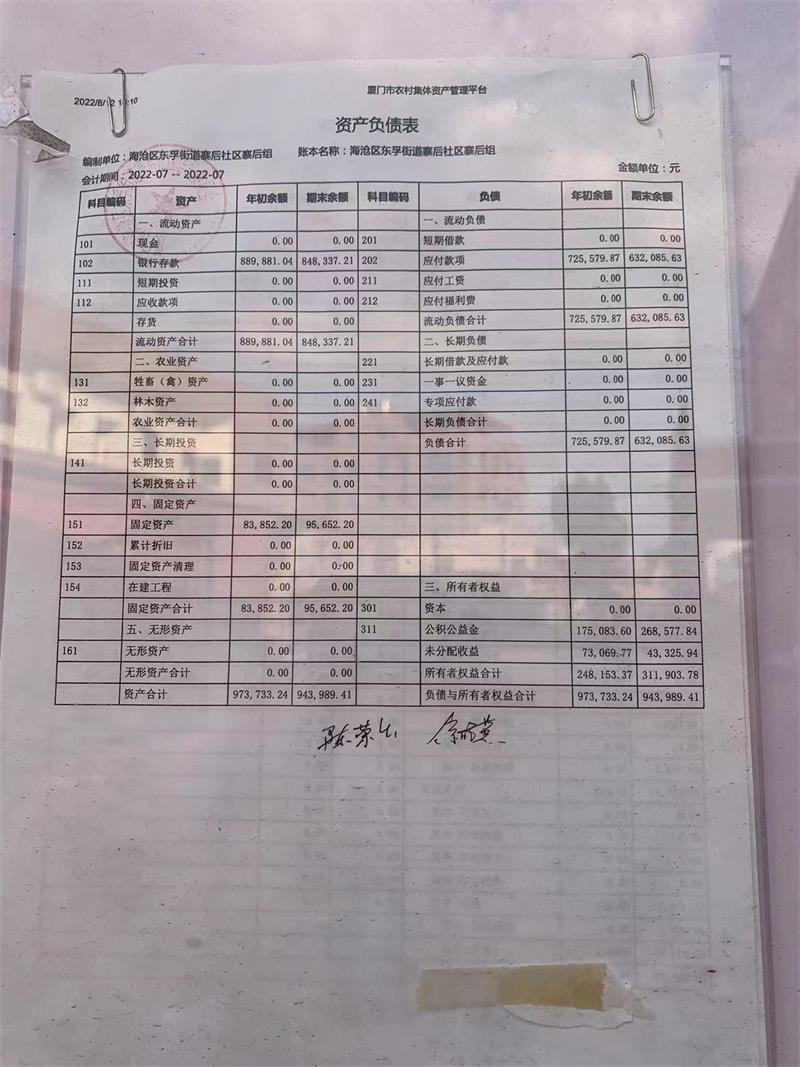 厦门市农村集体资产管理平台
2022/8/12 10:10
资产负债表
编制单位：海沧区东孚街道寨后社区寨后组 账本名称：海沧区东孚街道寨后社区寨后组
会计期间：2022-07 -- 2022-07 金额单位：元
科目编码 资产 年初余额 期末余额 科目编码 负债 年初余额 期末余额
一、流动资产 一、流动负债
101 现金 0.00 0.00 201 短期借款 0.00 0.00
102 银行存款 889,881.04 848,337.21 202 应付款项 725,579.87 632,085.63
111 短期投资 0.00 0.00 211 应付工资 0.00 0.00
112 应收款项 0.00 0.00 212 应付福利费 0.00 0.00
存货 0.00 0.00 流动负债合计 725,579.87 632,085.63
流动资产合计 889,881.04 848,337.21 二、长期负债
二、农业资产 221 长期借款及应付款 0.00 0.00
131 牲畜（禽）资产 0.00 0.00 231 一事一议资金 0.00 0.00
132 林木资产 0.00 0.00 241 专项应付款 0.00 0.00
农业资产合计 0.00 0.00 长期负债合计 0.00 0.00
三、长期投资 负债合计 725,579.87 632,085.63
141 长期投资 0.00 0.00
长期投资合计 0.00 0.00
四、固定资产
151 固定资产 83,852.20 95,652.20
152 累计折旧 0.00 0.00
153 固定资产清理 0.00 0.00
154 在建工程 0.00 0.00 三、所有者权益
固定资产合计 83,852.20 95,652.20 301 资本 0.00 0.00
五、无形资产 311 公积公益金 175,083.60 268,577.84
161 无形资产 0.00 0.00 未分配收益 73,069.77 43,325.94
无形资产合计 0.00 0.00 所有者权益合计 248,153.37 311,903.78
资产合计 973,733.24 943,989.41 负债与所有者权益合计 973,733.24 943,989.41